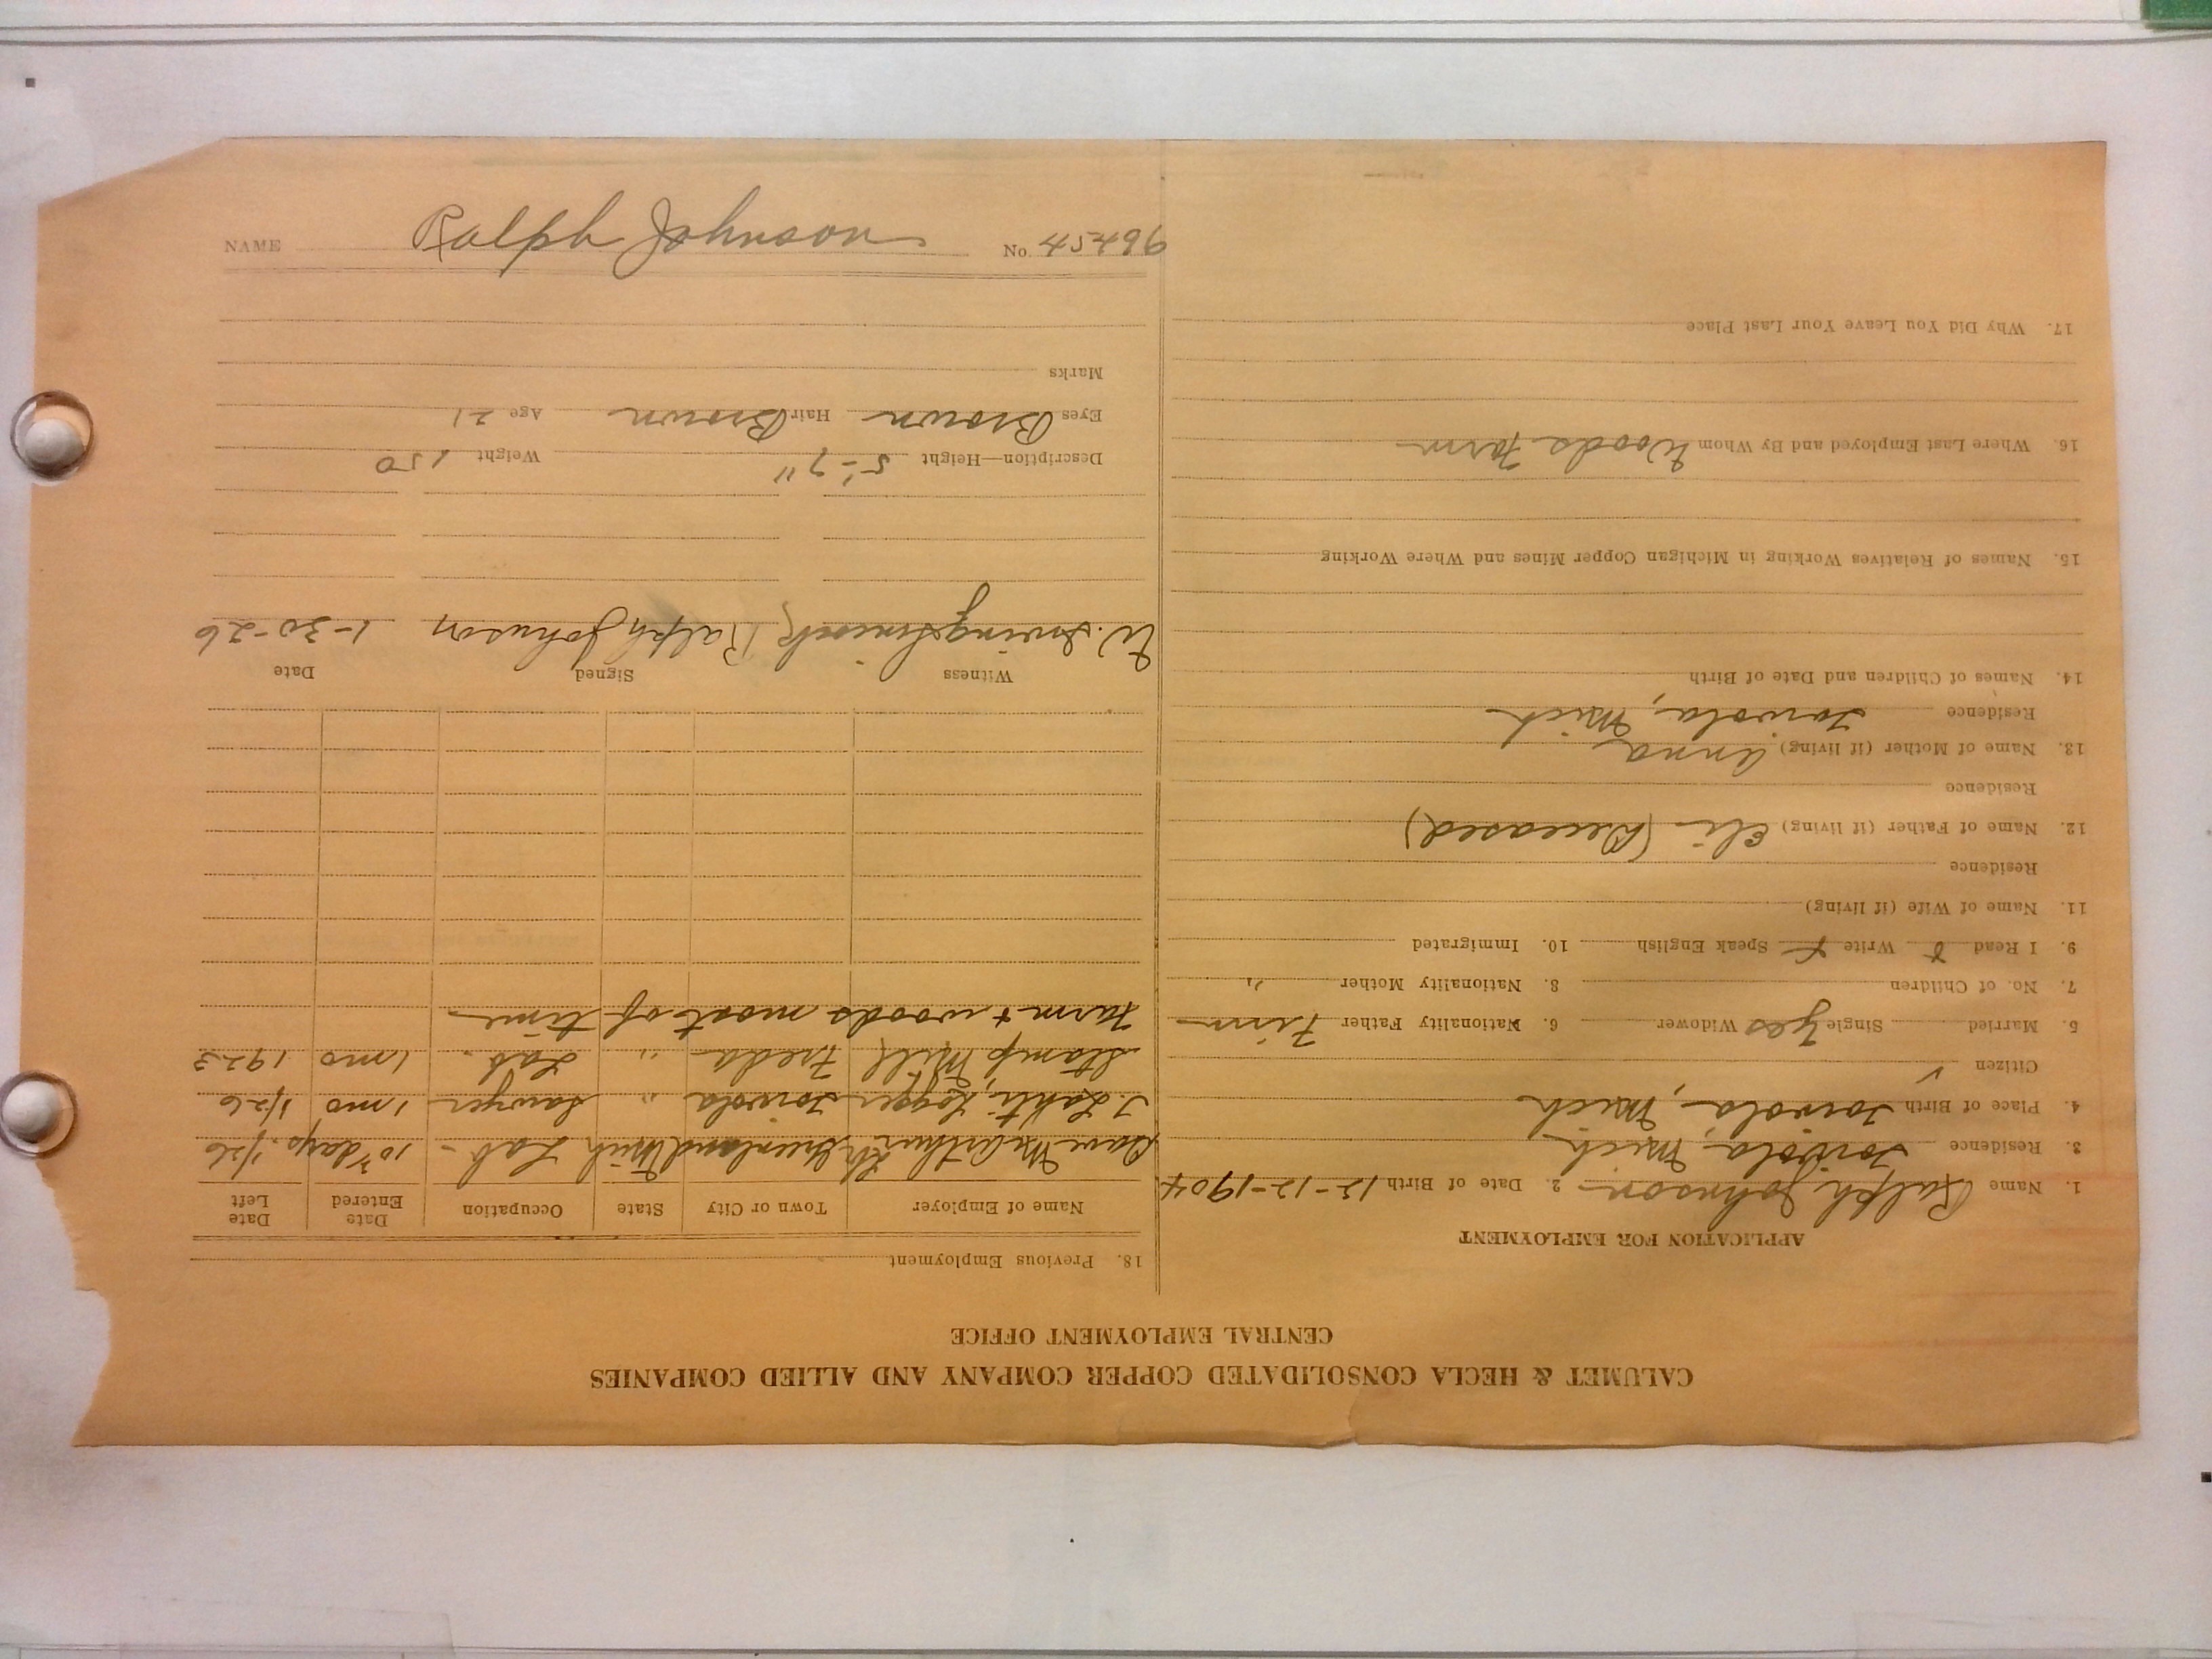 CALUMET & HECLA CONSOLIDATED COPPER COMPANY AND ALLIED COMPANIES
CENTRAL EMPLOYMENT OFFICE
APPLICATION FOR EMPLOYMENT
1. Name Ralph Johnson 2. Date of Birth 12-12-1904
3. Residence Toivola, Mich
4. Place of Birth Toivola, Mich
Citizen ✓
5. Married Single Yes Widower 6. Nationality Father Finn
7. No. of Children 8. Nationality Mother "
9. I Read Write Speak English 10. Immigrated
11. Name of Wife (if living)
Residence
12. Name of Father (if living) Eli (Deceased)
Residence
13. Name of Mother (if living) Anna
Residence Toivola, Mich
14. Names of Children and Date of Birth
15. Names of Relatives Working in Michigan Copper Mines and Where Working
16. Where Last Employed and By Whom Woods Farm
17. Why Did You Leave Your Last Place
18. Previous Employment
Name of Employer Town or City State Occupation Date Entered Date Left
Dave McArthur Greenland Mich Lab- 10 days 1/26
J. Lahti, Logger Toivola " Sawyer 1 mo 1/26
Stamp Mill Freda " Lab- 1 mo 1923
Farm + woods most of time
Witness Signed Date
W. Ralph Johnson 1-30-26
Description—Height 5'-7" Weight 150
Eyes Brown Hair Brown Age 21
Marks
NAME Ralph Johnson No. 45496